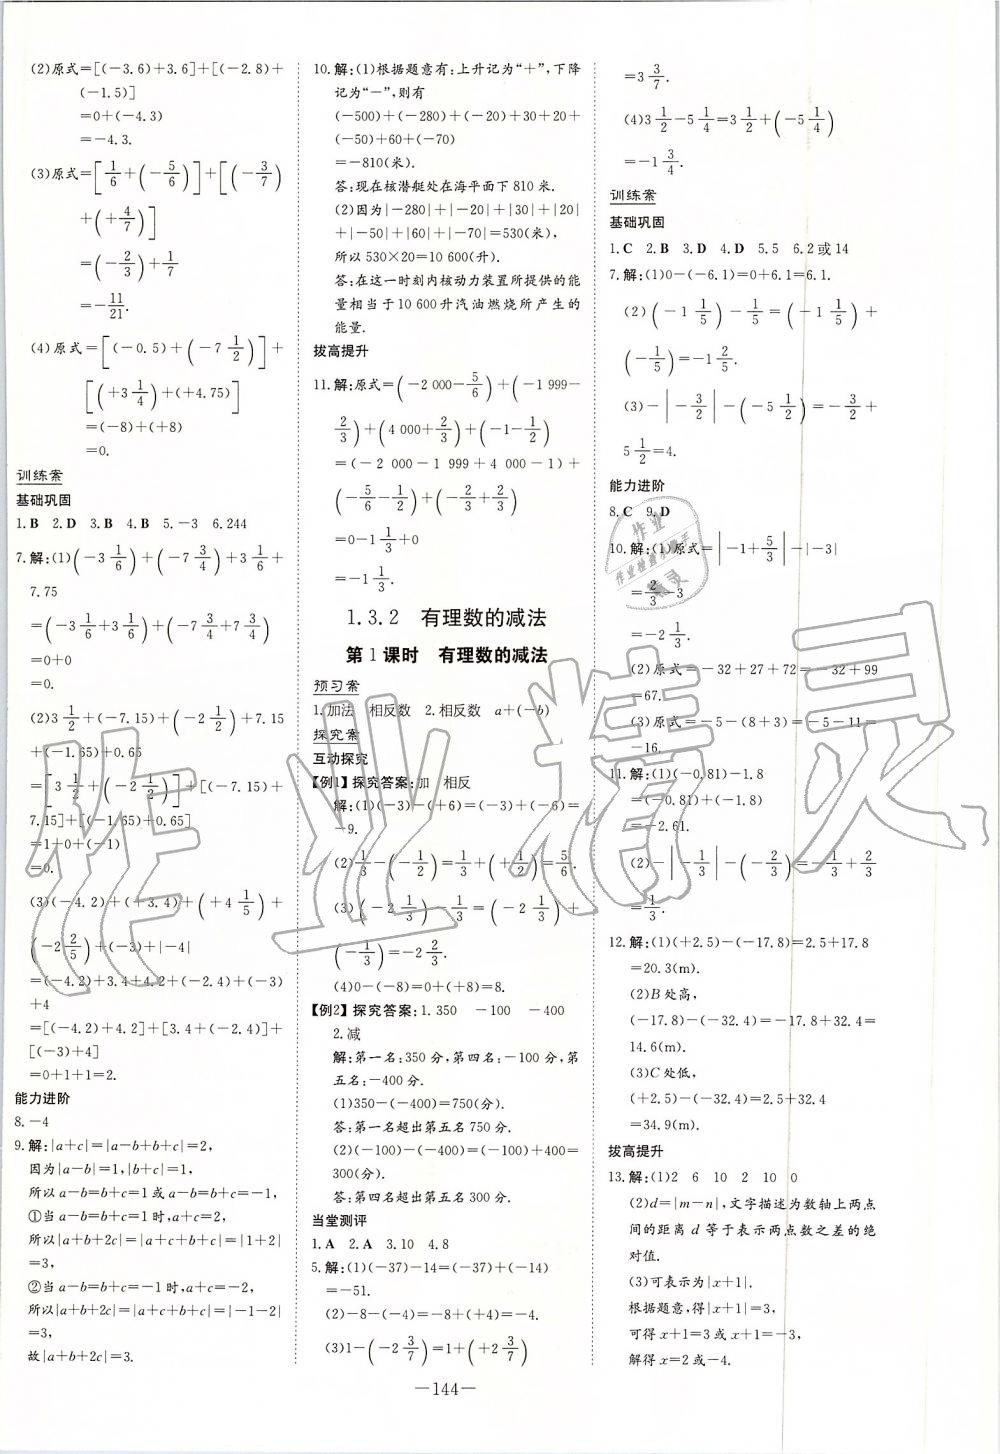 (2)原式=[(-3.6)+3.6]+[(-2.8)+
(-1.5)]
=0+(-4.3)
=-4.3.
(3)原式=[1/6+(-5/6)]+[(-3/7)
+(+4/7)]
=(-2/3)+1/7
=-11/21.
(4)原式=[(-0.5)+(-7 1/2)]+
[(+3 1/4)+(+4.75)]
=(-8)+(+8)
=0.
训练案
基础巩固
1.B 2.D 3.B 4.B 5.-3 6.244
7.解:(1)(-3 1/6)+(-7 3/4)+3 1/6+
7.75
=(-3 1/6+3 1/6)+(-7 3/4+7 3/4)
=0+0
=0.
(2)3 1/2+(-7.15)+(-2 1/2)+7.15
+(-1.65)+0.65
=[3 1/2+(-2 1/2)]+[(-7.15)+
7.15]+[(-1.65)+0.65]
=1+0+(-1)
=0.
(3)(-4.2)+(+3.4)+(+4 1/5)+
(-2 2/5)+(-3)+|-4|
=(-4.2)+3.4+4.2+(-2.4)+(-3)
+4
=[(-4.2)+4.2]+[3.4+(-2.4)]+
[(-3)+4]
=0+1+1=2.
能力进阶
8.-4
9.解:|a+c|=|a-b+b+c|=2,
因为|a-b|=1,|b+c|=1,
所以a-b=b+c=1或a-b=b+c=-1,
①当a-b=b+c=1时,a+c=2,
所以|a+b+2c|=|a+c+b+c|=|1+2|
=3,
②当a-b=b+c=-1时,a+c=-2,
所以|a+b+2c|=|a+c+b+c|=|-1-2|
=3,
故|a+b+2c|=3.
10.解:(1)根据题意有:上升记为“+”,下降
记为“-”,则有
(-500)+(-280)+(-20)+30+20+
(-50)+60+(-70)
=-810(米).
答:现在核潜艇处在海平面下810米.
(2)因为|-280|+|-20|+|30|+|20|
+|-50|+|60|+|-70|=530(米),
所以530×20=10 600(升).
答:在这一时刻内核动力装置所提供的能
量相当于10 600升汽油燃烧所产生的
能量.
拔高提升
11.解:原式=(-2 000-5/6)+(-1 999-
2/3)+(4 000+2/3)+(-1-1/2)
=(-2 000-1 999+4 000-1)+
(-5/6-1/2)+(-2/3+2/3)
=0-1 1/3+0
=-1 1/3.
1.3.2 有理数的减法
第1课时 有理数的减法
预习案
1.加法 相反数 2.相反数 a+(-b)
探究案
互动探究
【例1】探究答案:加 相反
解:(1)(-3)-(+6)=(-3)+(-6)=
-9.
(2)1/3-(-1/2)=1/3+(+1/2)=5/6.
(3)(-2 1/3)-1/3=(-2 1/3)+
(-1/3)=-2 2/3.
(4)0-(-8)=0+(+8)=8.
【例2】探究答案:1.350 -100 -400
2.减
解:第一名:350分,第四名:-100分,第
五名:-400分.
(1)350-(-400)=750(分).
答:第一名超出第五名750分.
(2)(-100)-(-400)=-100+400=
300(分).
答:第四名超出第五名300分.
当堂测评
1.A 2.A 3.10 4.8
5.解:(1)(-37)-14=(-37)+(-14)
=-51.
(2)-8-(-4)=-8+(+4)=-4.
(3)1-(-2 3/7)=1+(+2 3/7)
=3 3/7.
(4)3 1/2-5 1/4=3 1/2+(-5 1/4)
=-1 3/4.
训练案
基础巩固
1.C 2.B 3.D 4.D 5.5 6.2或14
7.解:(1)0-(-6.1)=0+6.1=6.1.
(2)(-1 1/5)-1/5=(-1 1/5)+
(-1/5)=-1 2/5.
(3)-|-3/2|-(-5 1/2)=-3/2+
5 1/2=4.
能力进阶
8.C 9.D
10.解:(1)原式=|-1+5/3|-|-3|
=2/3-3
=-2 1/3.
(2)原式=-32+27+72=-32+99
=67.
(3)原式=-5-(8+3)=-5-11=
-16.
11.解:(1)(-0.81)-1.8
=(-0.81)+(-1.8)
=-2.61.
(2)-|-1/3|-(-2/3)=-1/3+2/3
=1/3.
12.解:(1)(+2.5)-(-17.8)=2.5+17.8
=20.3(m).
(2)B处高,
(-17.8)-(-32.4)=-17.8+32.4=
14.6(m).
(3)C处低,
(+2.5)-(-32.4)=2.5+32.4
=34.9(m).
拔高提升
13.解:(1)2 6 10 2 10 0
(2)d=|m-n|,文字描述为数轴上两点
间的距离d等于表示两点数之差的绝
对值.
(3)可表示为|x+1|.
根据题意,得|x+1|=3,
可得x+1=3或x+1=-3,
解得x=2或-4.
—144—
作业精灵